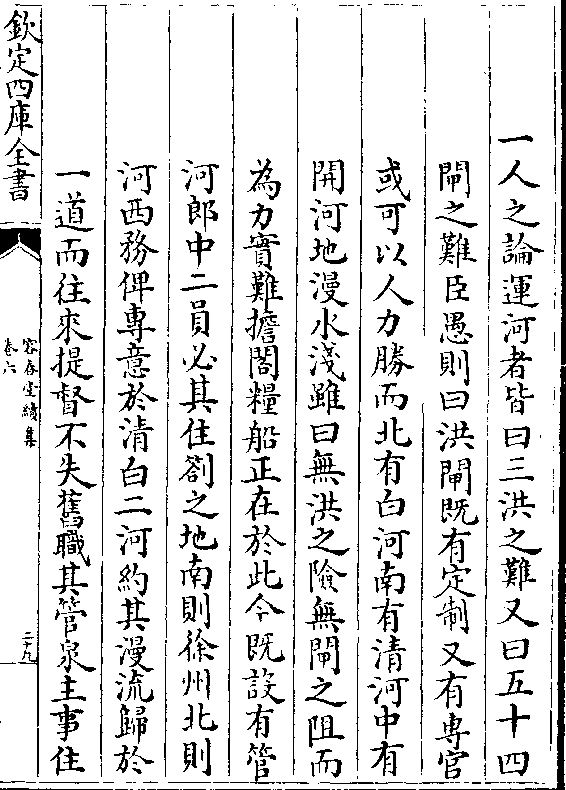 一人之論運河者皆曰三洪之難又曰五十四
閘之難臣愚則曰洪閘既有定制又有專官
或可以人力勝而北有白河南有清河中有
開河地漫水淺雖曰無洪之險無閘之阻而
為力實難擔閣糧船正在於此今既設有管
河郎中二員必其住劄之地南則徐州北則
河西務俾專意於清白二河約其漫流歸於
一道而往來提督不失舊職其管泉主事住
欽定四庫全書
容春堂續集
卷六
二十九